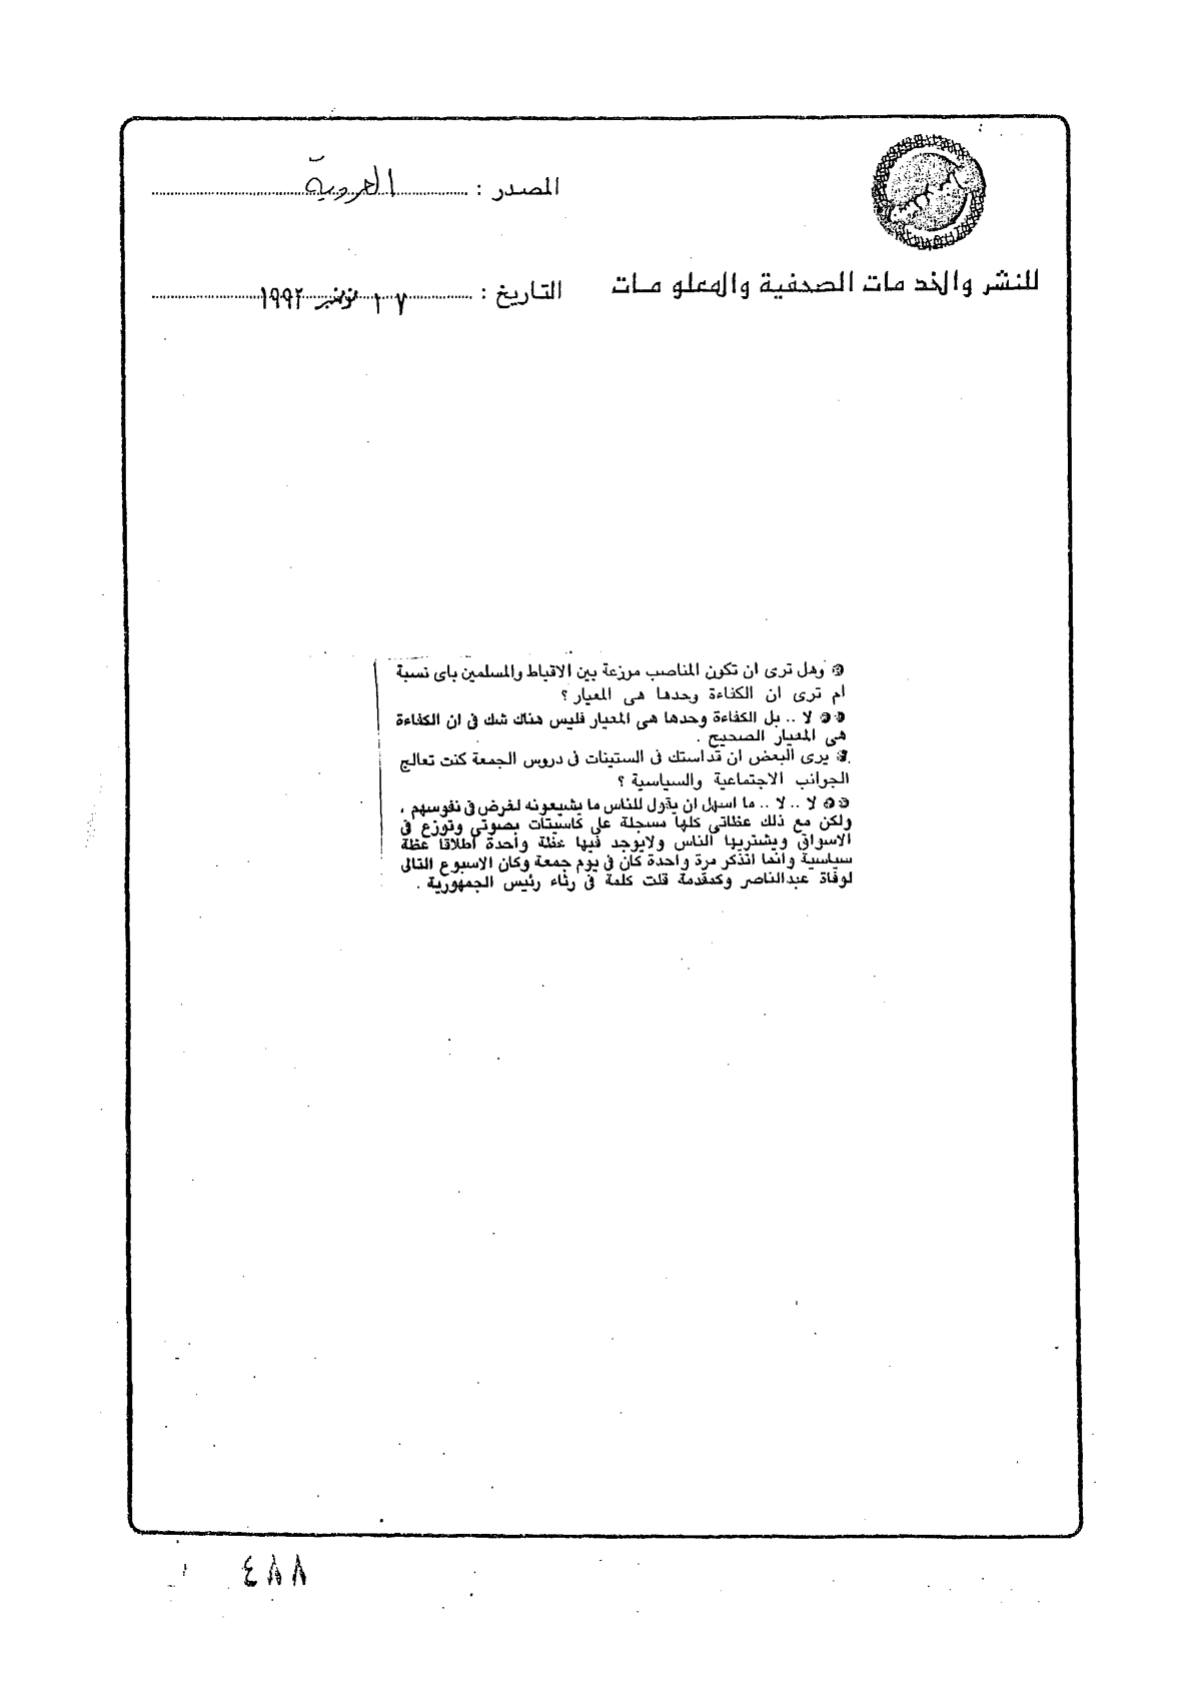 المصدر : العروبة
للنشر والخدمات الصحفية والمعلومات
التاريخ : ١٧ نوفمبر ١٩٩٢
وهل ترى ان تكون المناصب مرزعة بين الاقباط والمسلمين باى نسبة
ام ترى ان الكفاءة وحدها هى المعيار ؟
لا .. بل الكفاءة وحدها هى المعيار فليس هناك شك فى ان الكفاءة
هى المعيار الصحيح .
يرى البعض ان قداستك فى الستينات فى دروس الجمعة كنت تعالج
الجوانب الاجتماعية والسياسية ؟
لا .. لا .. ما اسهل ان يقول للناس ما يشيعونه لغرض فى نفوسهم ،
ولكن مع ذلك عظاتى كلها مسجلة على كاسيتات بصوتى وتوزع فى
الاسواق ويشتريها الناس ولايوجد فيها عظة واحدة اطلاقا عظة
سياسية وانما اتذكر مرة واحدة كان فى يوم جمعة وكان الاسبوع التالى
لوفاة عبدالناصر وكمقدمة قلت كلمة فى رثاء رئيس الجمهورية .
٤٨٨